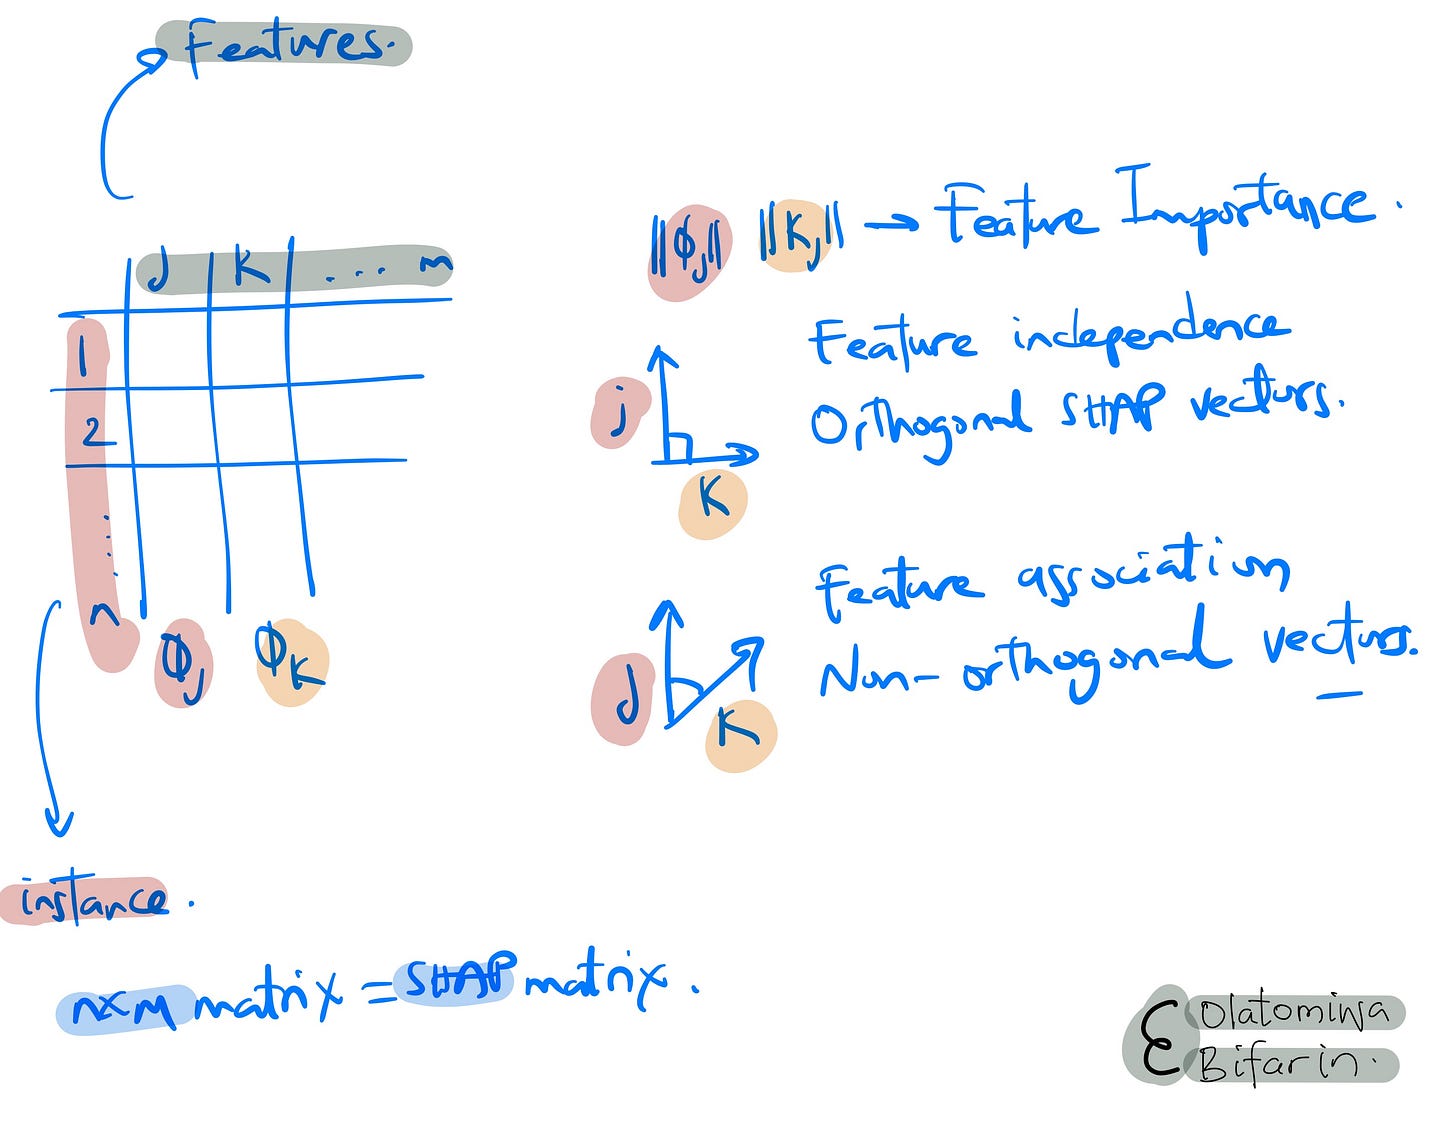 Features.
J K .... m
1
2
n
ϕj ϕK
instance.
nxm matrix = SHAP matrix.
||ϕj|| ||Kj|| → Feature Importance.
j
K
Feature independence
Orthogonal SHAP vectors.
J
K
Feature association
Non-orthogonal vectors.
Olatomiwa
Bifarin.